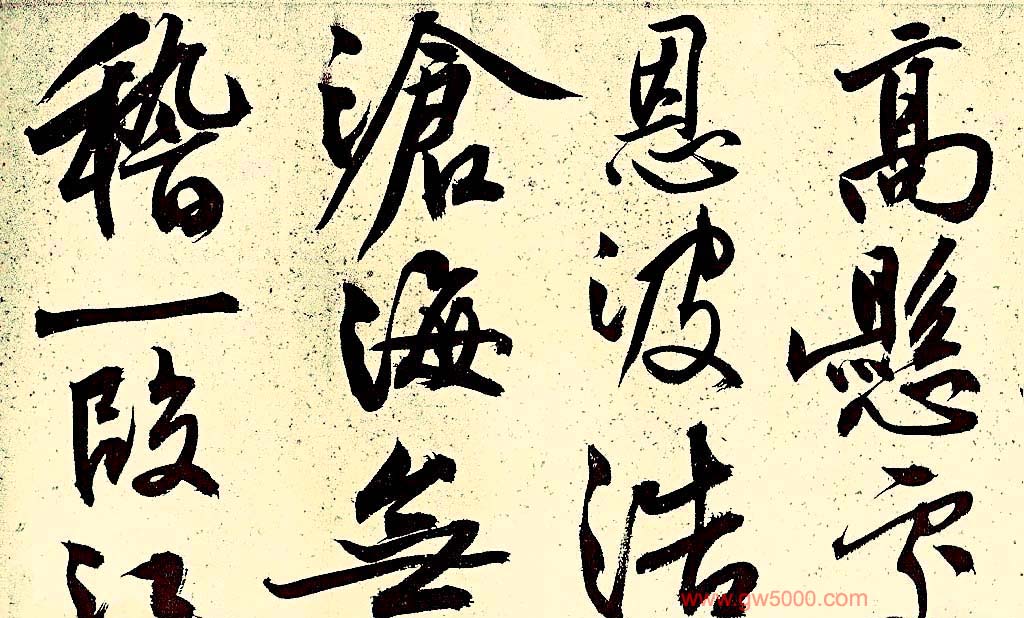 高懸
恩波浩
滄海無
稽一段
www.gw5000.com